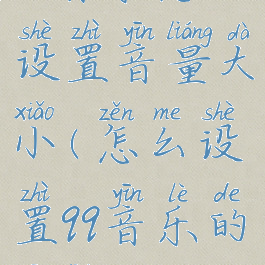 shè zhì yīn liáng dà
设置音量大
xiǎo zěn me shè
小(怎么设
zhì yīn lè de
置99音乐的